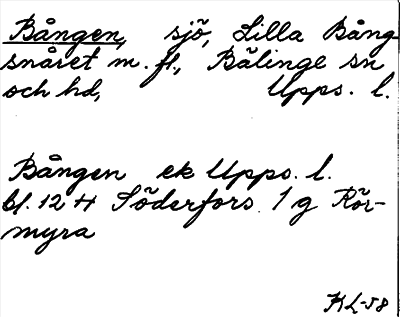 Bången, sjö, Lilla Bång-
snåret m. fl., Bälinge sn
och hd, Upps. l.
Bången ek Upps. l.
bl. 12 H Söderfors 1 g Rör-
myra
KL-58